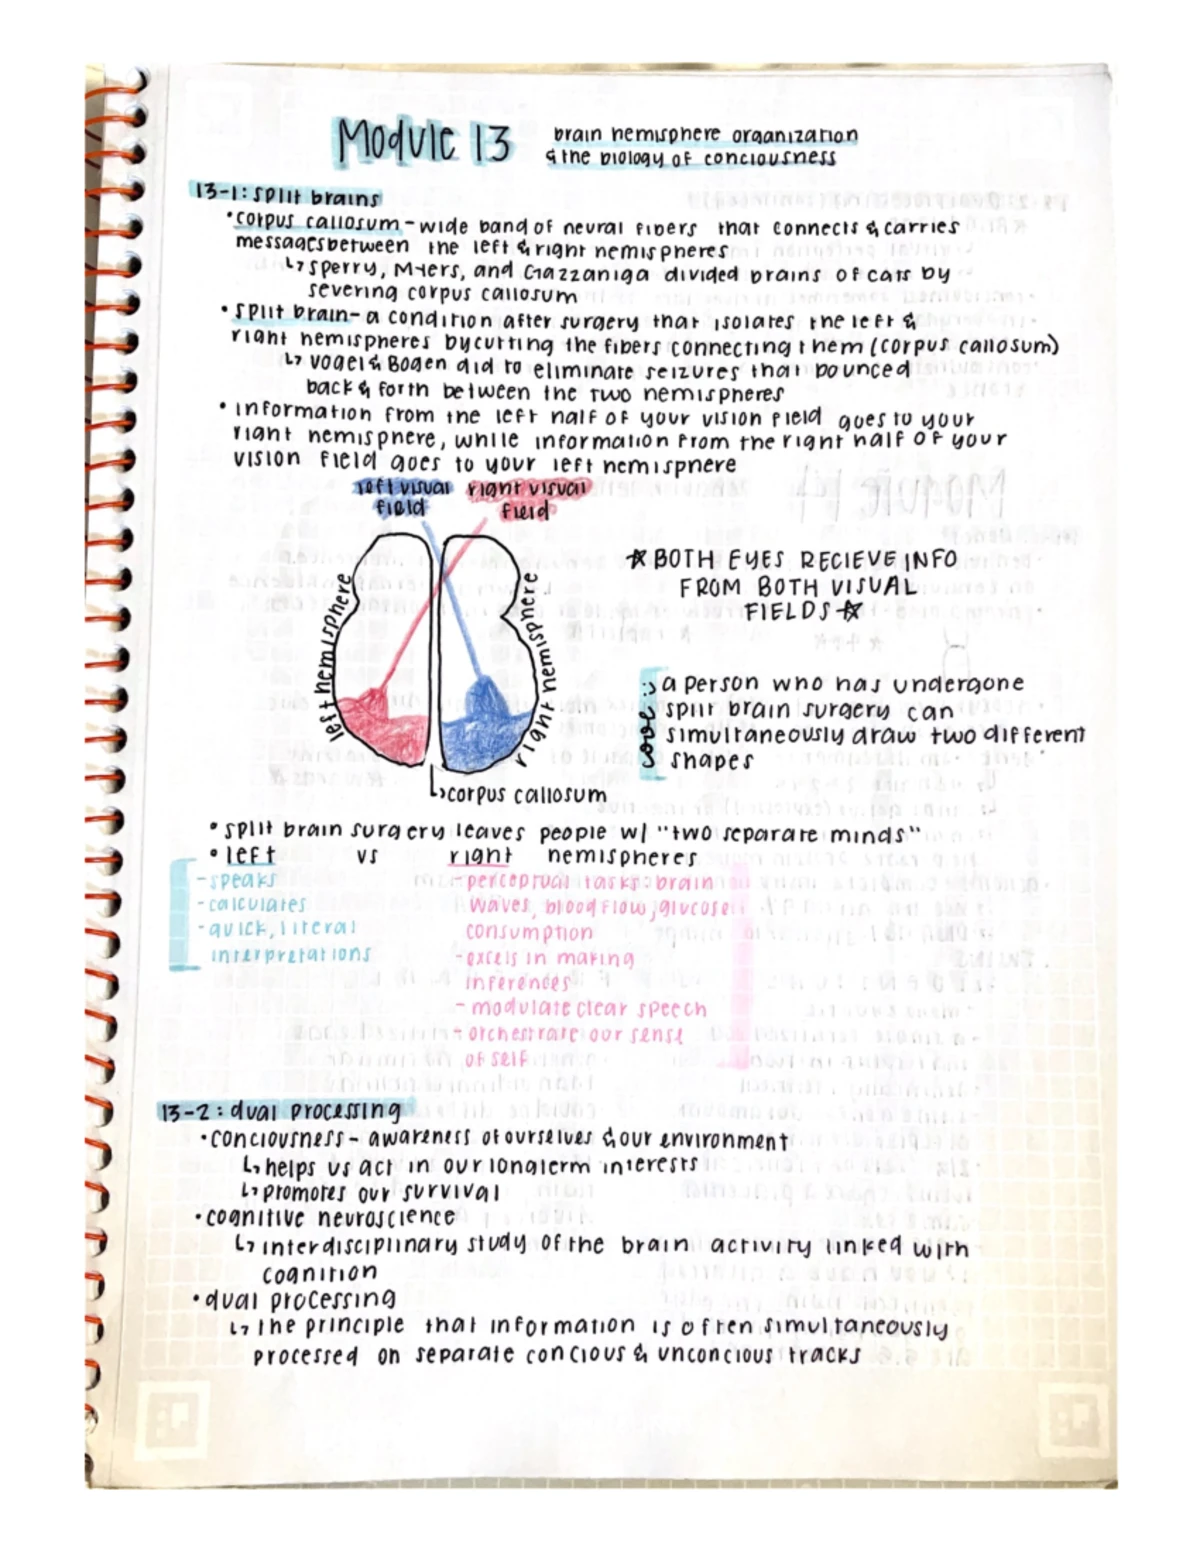 Module 13 brain hemisphere organization
& the biology of conciousness
13-1: split brains
• corpus callosum - wide band of neural fibers that connects & carries
messages between the left & right hemispheres
↳ sperry, Myers, and Gazzaniga divided brains of cats by
severing corpus callosum
• split brain - a condition after surgery that isolates the left &
right hemispheres by cutting the fibers connecting them (corpus callosum)
↳ Vogel & Bogen did to eliminate seizures that bounced
back & forth between the two hemispheres
• information from the left half of your vision field goes to your
right hemisphere, while information from the right half of your
vision field goes to your left hemisphere
left visual
field
right visual
field
left hemisphere
right hemisphere
↳ corpus callosum
☆ BOTH EYES RECIEVE INFO
FROM BOTH VISUAL
FIELDS ☆
cool :)
a person who has undergone
split brain surgery can
simultaneously draw two different
shapes
• split brain surgery leaves people w/ "two separate minds"
• left vs right hemispheres
- speaks
- calculates
- quick, literal
interpretations
- perceptual tasks: brain
waves, bloodflow, glucose
consumption
- excels in making
inferences
- modulate clear speech
- orchestrate our sense
of self
13-2: dual processing
• conciousness - awareness of ourselves & our environment
↳ helps us act in our longterm interests
↳ promotes our survival
• cognitive neuroscience
↳ interdisciplinary study of the brain activity linked with
cognition
• dual processing
↳ the principle that information is often simultaneously
processed on separate concious & unconcious tracks